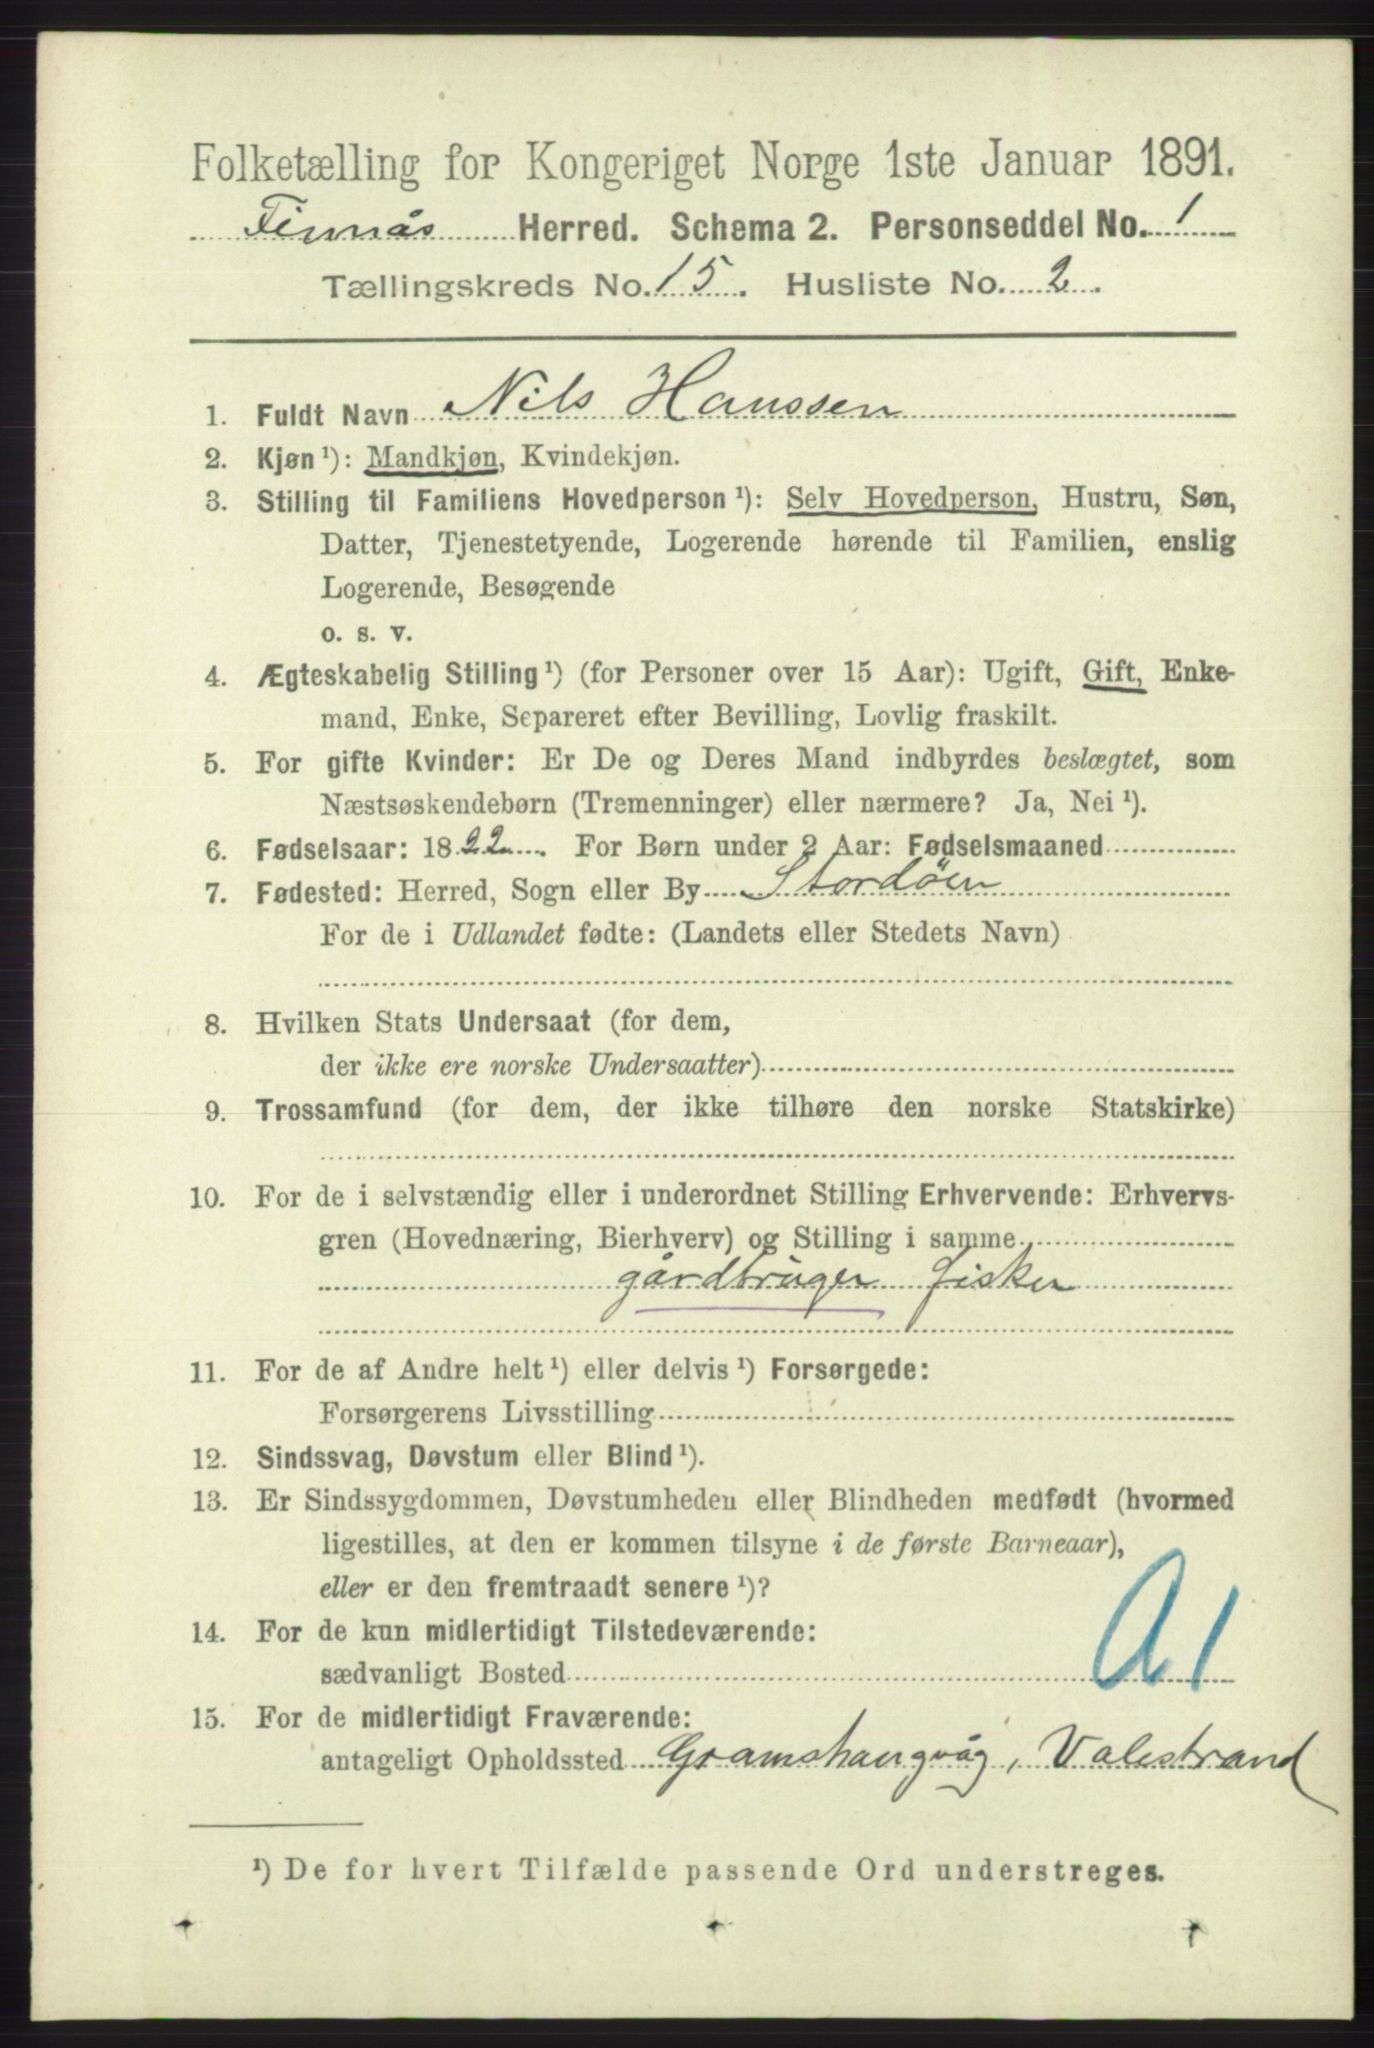 Folketælling for Kongeriget Norge 1ste Januar 1891.
Finnås Herred. Schema 2. Personseddel No. 1
Tællingskreds No. 15. Husliste No. 2.
1. Fuldt Navn Nils Hanssen
2. Kjøn ¹): Mandkjøn, Kvindekjøn.
3. Stilling til Familiens Hovedperson ¹): Selv Hovedperson, Hustru, Søn,
Datter, Tjenestetyende, Logerende hørende til Familien, enslig
Logerende, Besøgende
o. s. v.
4. Ægteskabelig Stilling ¹) (for Personer over 15 Aar): Ugift, Gift, Enke-
mand, Enke, Separeret efter Bevilling, Lovlig fraskilt.
5. For gifte Kvinder: Er De og Deres Mand indbyrdes beslægtet, som
Næstsøskendebørn (Tremenninger) eller nærmere? Ja, Nei ¹).
6. Fødselsaar: 1822. For Børn under 2 Aar: Fødselsmaaned
7. Fødested: Herred, Sogn eller By Stordöen
For de i Udlandet fødte: (Landets eller Stedets Navn)
8. Hvilken Stats Undersaat (for dem,
der ikke ere norske Undersaatter)
9. Trossamfund (for dem, der ikke tilhøre den norske Statskirke)
10. For de i selvstændig eller i underordnet Stilling Erhvervende: Erhvervs-
gren (Hovednæring, Bierhverv) og Stilling i samme
gårdbruger fisker
11. For de af Andre helt ¹) eller delvis ¹) Forsørgede:
Forsørgerens Livsstilling
12. Sindssvag, Døvstum eller Blind ¹).
13. Er Sindssygdommen, Døvstumheden eller Blindheden medfødt (hvormed
ligestilles, at den er kommen tilsyne i de første Barneaar),
eller er den fremtraadt senere ¹)?
14. For de kun midlertidigt Tilstedeværende:
sædvanligt Bosted
A1
15. For de midlertidigt Fraværende:
antageligt Opholdssted Gramshaugvåg, Valestrand
¹) De for hvert Tilfælde passende Ord understreges.